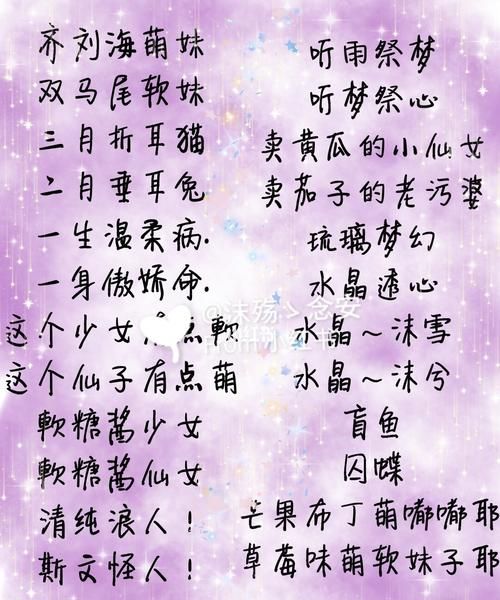 齐刘海萌妹
双马尾软妹
三月折耳猫
二月垂耳兔
一生温柔病.
一身傲娇命.
这个少女 点軟
这个仙子有点萌
軟糖酱少女
軟糖酱仙女
清纯浪人！
斯文怪人！
听雨祭梦
听梦祭心
卖黄瓜的小仙女
卖茄子的老污婆
琉璃梦幻
水晶 心
水晶～沫雪
水晶～沫兮
盲鱼
囚蝶
芒果布丁萌嘟嘟耶
草莓味萌软妹子耶
@沫殇ゝ念安